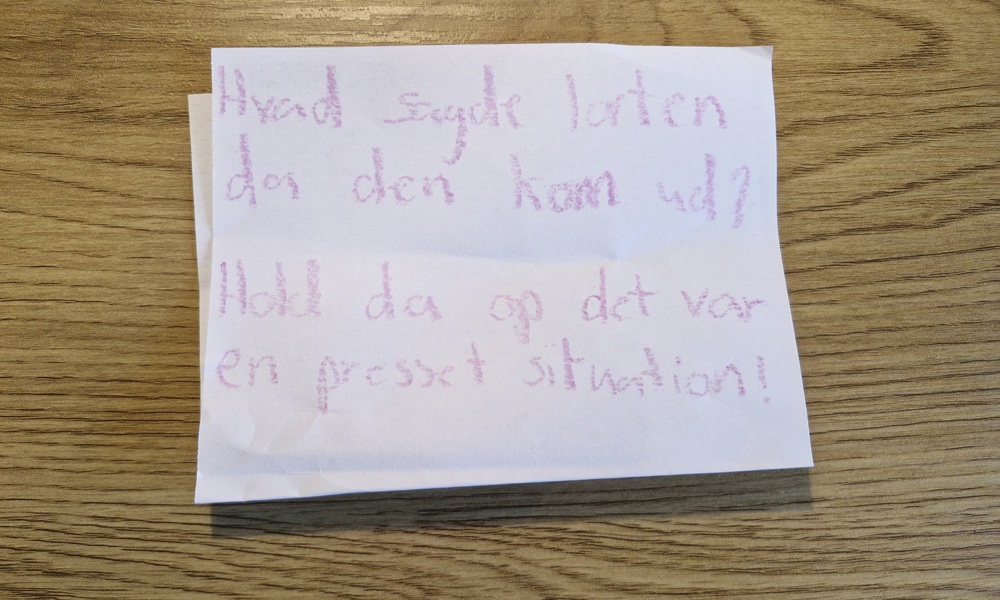 Hvad sagde lorten
da den kom ud?
Hold da op det var
en presset situation!